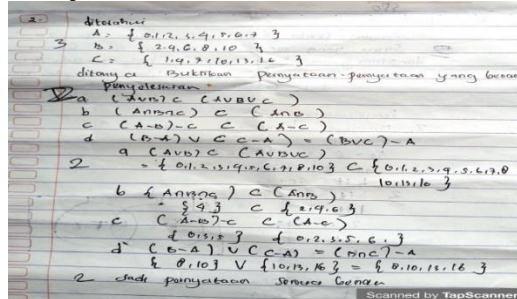 2. diketahui
A = { 0,1,2,3,4,5,6,7 }
3 B = { 2,4,6,8,10 }
C = { 1,4,7,10,13,16 }
ditanya Buktikan pernyataan-pernyataan yang benar
penyelesaian
a (AUB) C (AUBUC)
b (ANBNC) C (ANB)
c (A-B)-C C (A-C)
d (B-A) U (C-A) = (BUC)-A
a (AUB) C (AUBUC)
2 = { 0,1,2,3,4,5,6,7,8,10} C { 0,1,2,3,4,5,6,7,8
10,13,16 }
b { ANBNC ) C (ANB)
= {4} C { 2,4,6 }
c (A-B)-C C (A-C)
{ 0,3,5 } { 0,2,3,5,6, }
d (B-A) U (C-A) = (BNC)-A
{ 8,10} U {10,13,16 } = { 8,10,13,16 }
2 Jadi pernyataan semua benar
Scanned by TapScanner